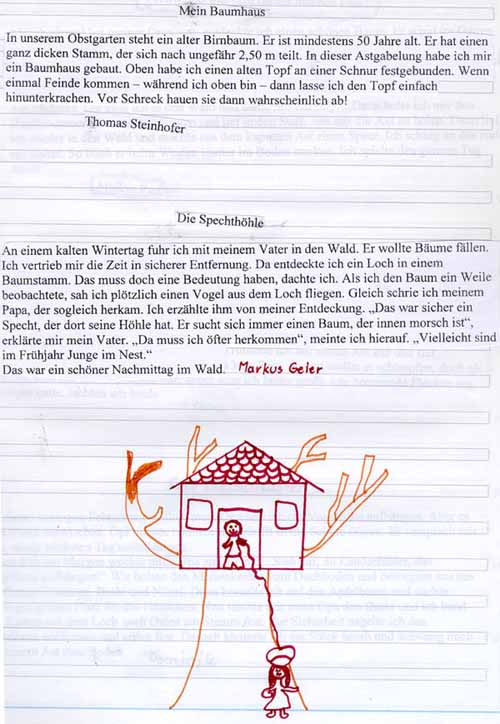 Mein Baumhaus
In unserem Obstgarten steht ein alter Birnbaum. Er ist mindestens 50 Jahre alt. Er hat einen
ganz dicken Stamm, der sich nach ungefähr 2,50 m teilt. In dieser Astgabelung habe ich mir
ein Baumhaus gebaut. Oben habe ich einen alten Topf an einer Schnur festgebunden. Wenn
einmal Feinde kommen – während ich oben bin – dann lasse ich den Topf einfach
hinunterkrachen. Vor Schreck hauen sie dann wahrscheinlich ab!
Thomas Steinhofer
Die Spechthöhle
An einem kalten Wintertag fuhr ich mit meinem Vater in den Wald. Er wollte Bäume fällen.
Ich vertrieb mir die Zeit in sicherer Entfernung. Da entdeckte ich ein Loch in einem
Baumstamm. Das muss doch eine Bedeutung haben, dachte ich. Als ich den Baum ein Weile
beobachtete, sah ich plötzlich einen Vogel aus dem Loch fliegen. Gleich schrie ich meinem
Papa, der sogleich herkam. Ich erzählte ihm von meiner Entdeckung. „Das war sicher ein
Specht, der dort seine Höhle hat. Er sucht sich immer einen Baum, der innen morsch ist“,
erklärte mir mein Vater. „Da muss ich öfter herkommen“, meinte ich hierauf. „Vielleicht sind
im Frühjahr Junge im Nest.“
Das war ein schöner Nachmittag im Wald. Markus Geier